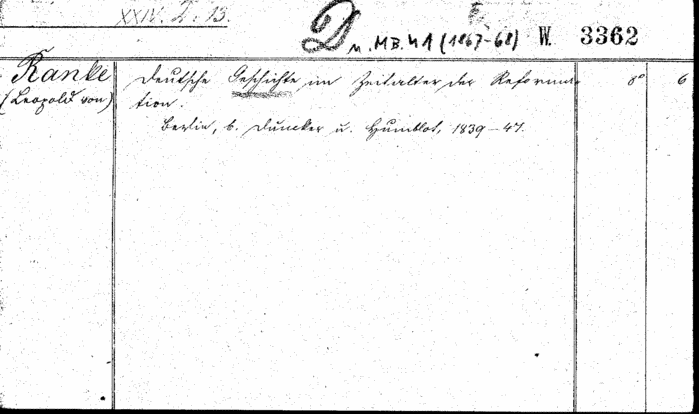 XXIV. 2. 13.
D n. MB. 41 (1867-68) W. 3362
Ranke (Leopold von)
Deutsche Geschichte im Zeitalter der Reforma-
tion.
Berlin, b. Duncker u. Humblot, 1839-47.
8° 6